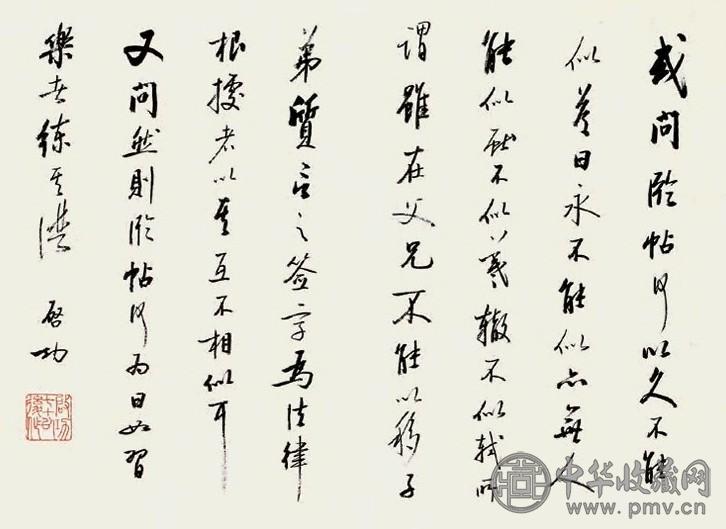 或問臨帖何以久不能
似答曰永不能似亦無人
能似獻不似羲轍不似軾所
謂雖在父兄不能以移子
弟質言之簽字為法律
根據者以其互不相似耳
又問然則臨帖何為曰如習
樂者練其譜
啓功
中华收藏网
www.pmv.cn